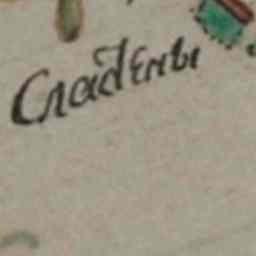 Сладены